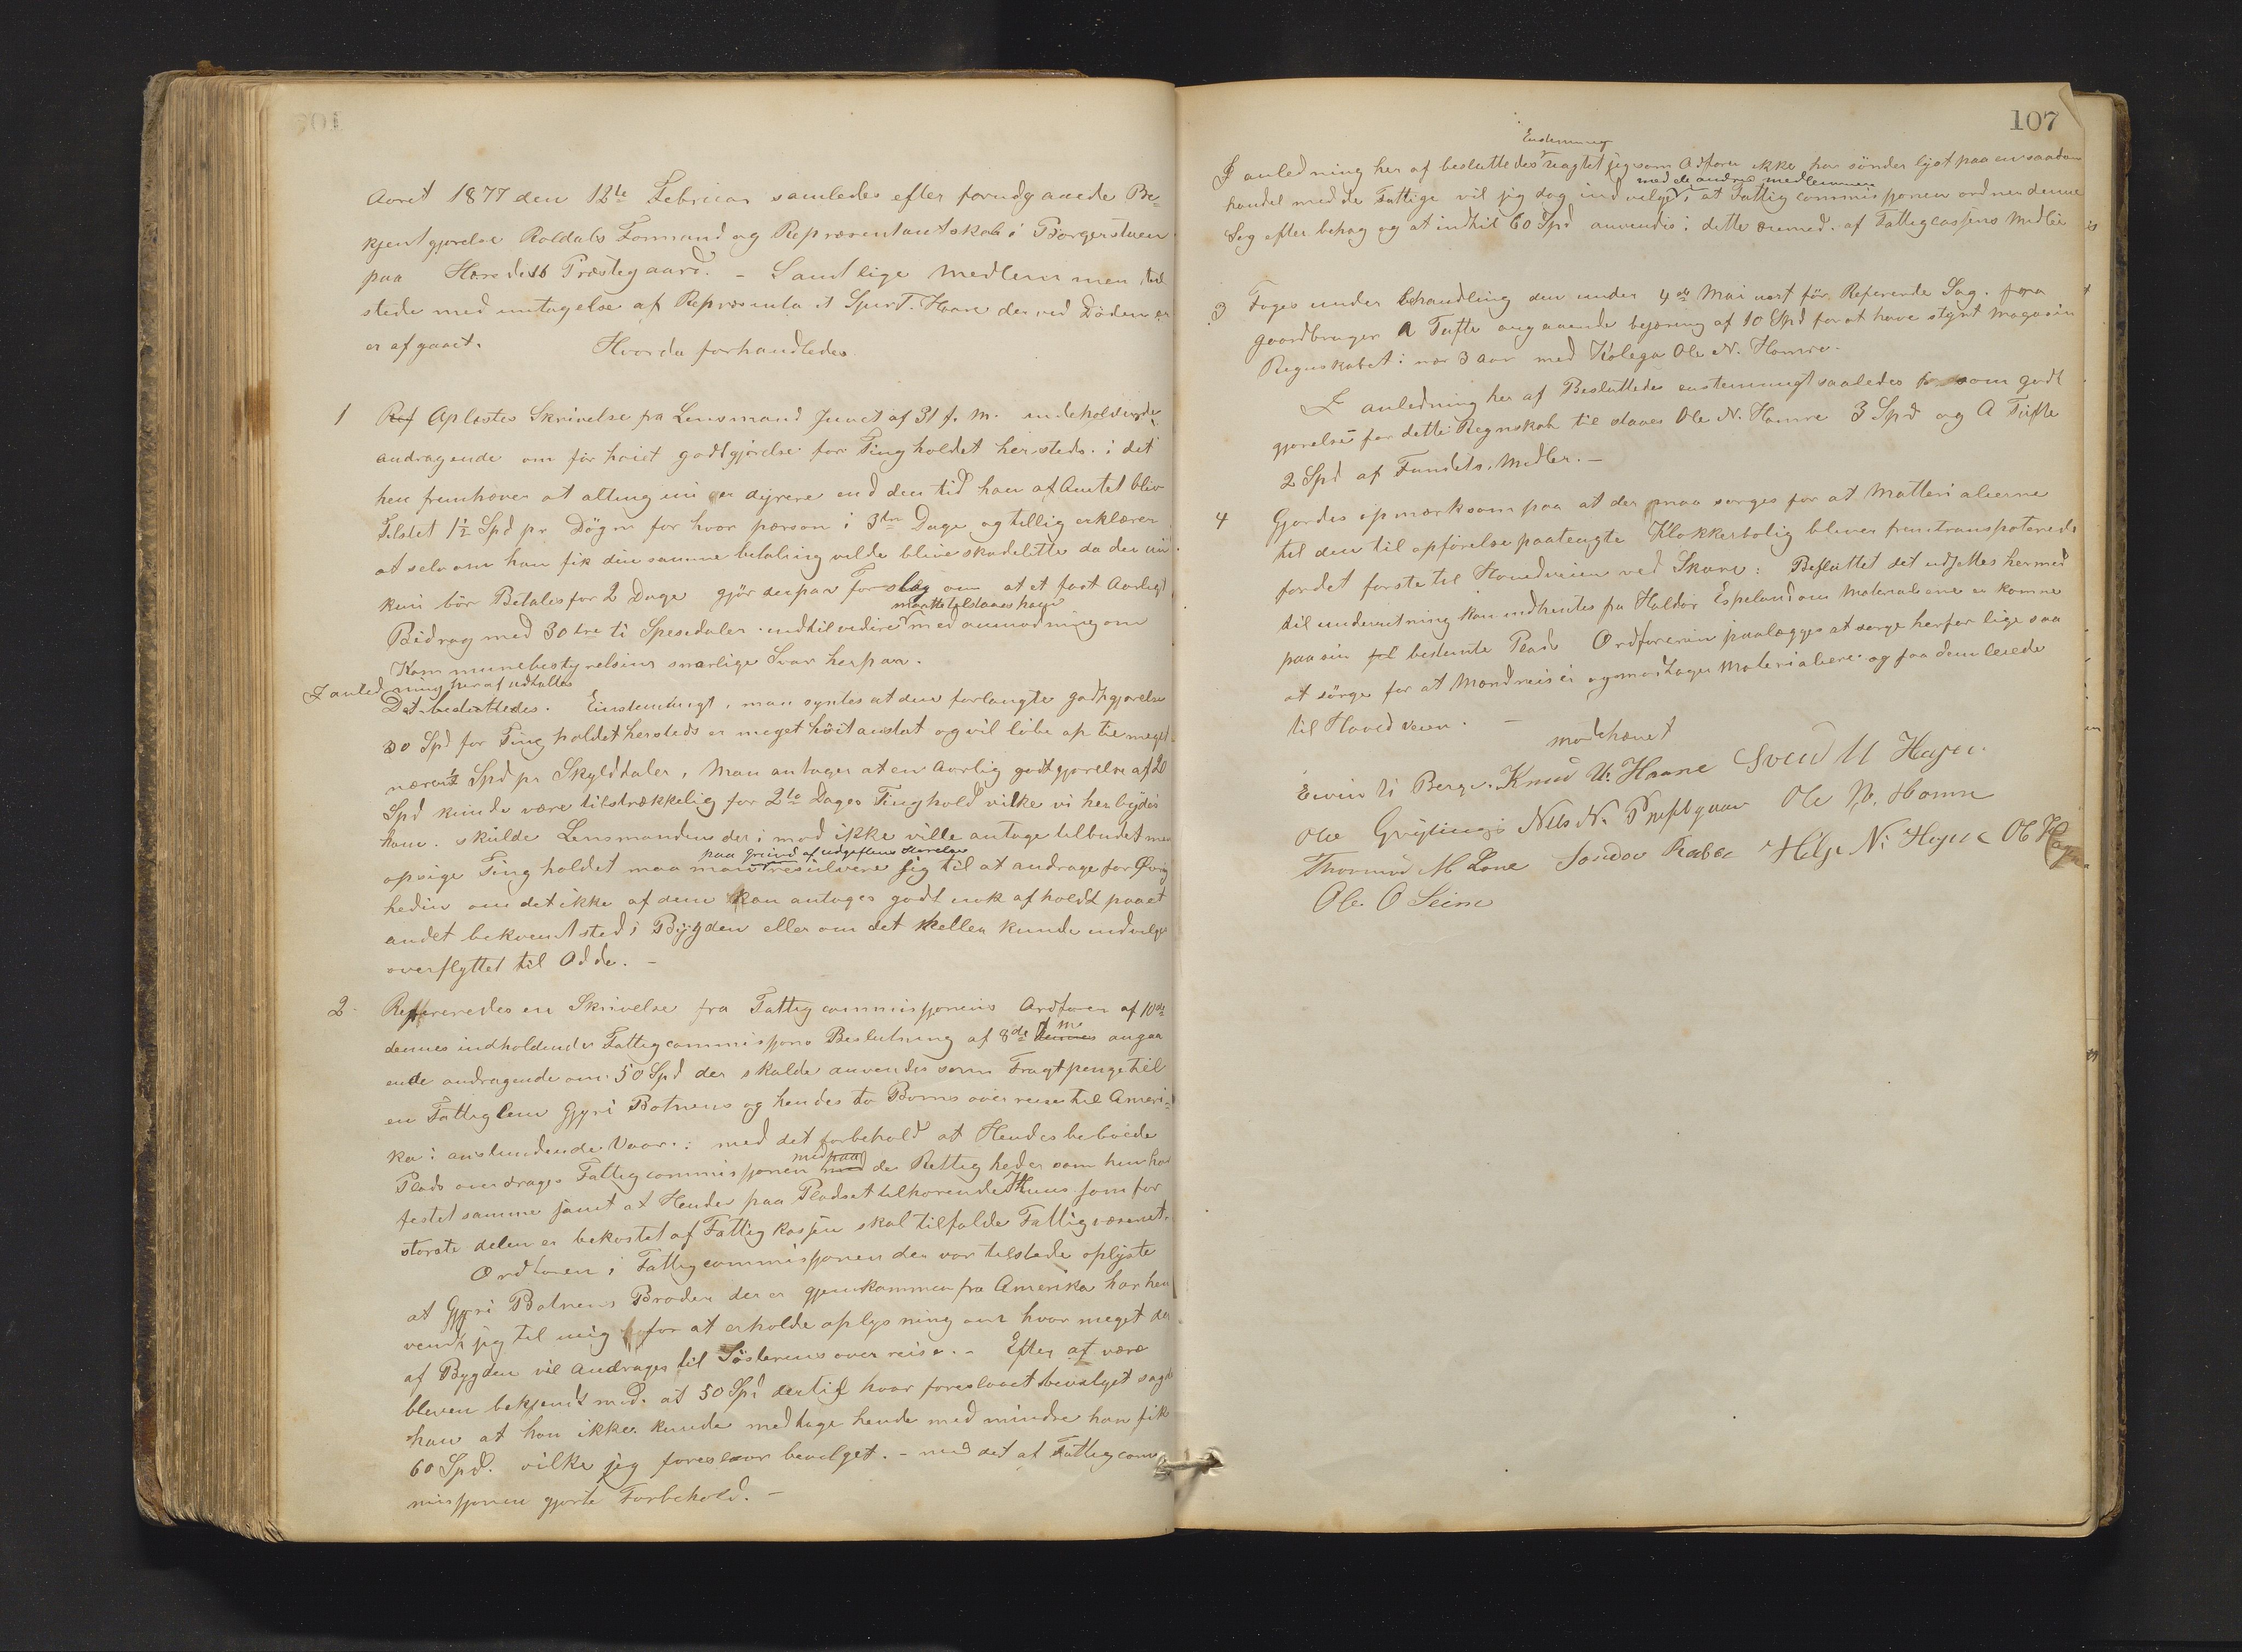 Aaret 1877 den 12te Februar samledes efter forudgaaede Be-
kjentgjørelse Roldals Formand og Repræsentantskab i Borgerstuen
paa Præstegaard. - Samtlige Medlemmer til
stede med untagelse af Repræsenta t Haare der ved Døden er
er afgaaet. Hvorda forhandledes
1 Ref Aplæstes Skrivelse fra Lensmand Juuet af 31 f. M. indeholdende
andragende om før høiet godtgjørelse for Tingholdet hersteds. i det
han fremhæver at alting nu er dyrere end den tid han af Amtet blev
Tilstet 1½ Spd pr Døgn for hver person i 3tre Dage og tillig erklærer
at selv om han fik den samme betaling vilde blive skadelitte da der nu
kun bør Betales for 2 Dage gjør derpaa Forslag om at et fast Aarligt
maatte tilstaaes ham
Bidrag med 30 tre ti Spesidaler indtil vidire med anmodning om
Kommunebestyrelsens snarlige Svar herpaa.
I anledning heraf udtaltes
Det besluttedes. Einstemmigt, man syntes at den forlangte godtgjørelse
30 Spd for Tingholdet hersteds er meget høit anslat og vil løbe op til meget
nærer ½ Spd pr Skylddaler, Man antager at en Aarlig godtgjørelse af 20
Spd kunde være tilstrækkelig for 2to Dages Tinghold vilke vi herbyder
ham. skulde Lensmanden der i mod ikke ville antage tilbudet men
paa Grund af udgiftens Størelse
opsige Tingholdet maa man resulvere sig til at andrage for Øvrig
heden om det ikke af dem kan antages godt nok afholdt paa et
andet bekvemt sted i Bygden eller om det heller kunde indvilges
overflyttet til Odde. -
2 Reffereredes en Skrivelse fra Fattigcommissjonens Ordfører af 10de
dennes indholdende Fattigcommissjons Beslutning af 8de dennes d M angaa
ende andragende om 50 Spd der skulde anvendes som Fragtpenge til
en Fattiglem Gyri Botnens og hendes to Børns overreise til Ameri-
ka i anstundende Vaar.: med det forbehold at Hendes beboede
Plads omdrages Fattigcommissjonen med medpaa der Rettigheder som hun har
festet samme samt at Hendes paa Pladset tilhørende Huus som for
største delen er bekostet af Fattigkassen skal tilfalde Fattigvæsenet.
Ordføren i Fattigcommissjonen der var tilstede oplyste
at Gyri Botnens Broder der er gjenkommen fra Amerika har hen
vendt seg til mig for at erholde oplysning om hvor meget der
af Bygden vil Andrages til Søsterens over reise. - Efter at være
bleven bekjendt med. at 50 Spd dertil hvar foreslaaet bevilget sagde
han at han ikke kunde medtage hende med mindre han fik
60 Spd. vilke jeg foreslaar bevilget. - med det af Fattigcom
missjonen gjorte Forbehold. -
107
Enstemmig
I anledning her af besluttedes uagtet jeg som Ordfører ikke har sønder lyst paa en saadan
med de andre medlemmer
handel med de Fattige vil jeg dog ind vilge, at Fattigcommissjonen ordner denne
Sag efter behag og at indtil 60 Spd anvendes i dette øiemed. af Fattigcassens Midler
3 Toges under behandling den under 4de Mai nest før Refererede Sag. fra
gaardbruger A Tufte angaaende begjæring af 10 Spd for at have styrt Magasin
Regnskabet i nær 3 Aar med Kolega Ole N. Hamre.
I anledning her af Besluttedes enstemmigt saaledes som godt
gjørelse for dette Regnskab til staaes Ole N. Hamre 3 Spd og A Tufte
2 Spd af Fundets. Midler. -
4 Gjordes opmerksom paa at der maa sørges for at Matterialierne
til den til opførelse paatengte Klokkerbolig bliver fremtransportereds
fordet første til Hovedveien ved Skare: Besluttet det udsettes hermed
til underretning kan indhentes fra Haldor Espeland om Materialiene er komne
paa sin bestemte Plads Ordføreren paalægges at sørge herfor lige saa
at sørge for at Mand reiser og modtager Materialiene og faa dem leiede
til Hovedveien. -
modehævet
Eivin Berge. Knud U. Haare Svend U Hagen.
Ole Gryting Nils N. Prestgaar Ole N. Hamre
Thormod M Lone Sondov Rabbe Helge N: Hagen Ol Hagen
Ole O Seim